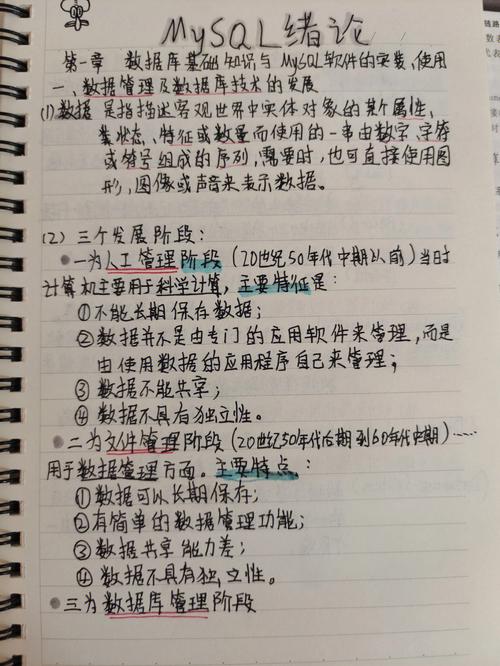 MySQL绪论
第一章 数据库基础知识与MySQL软件的安装、使用
一、数据管理及数据库技术的发展
(1)数据是指描述客观世界中实体对象的某个属性、
某状态、特征或数量而使用的一串由数字、字符
或符号组成的序列,需要时,也可直接使用图
形,图像或声音来表示数据。
(2)三个发展阶段:
●一为人工管理阶段(20世纪50年代中期以前)当时
计算机主要用于科学计算,主要特征是:
①不能长期保存数据;
②数据并不是由专门的应用软件来管理,而是
由使用数据的应用程序自己来管理;
③数据不能共享;
④数据不具有独立性。
●二为文件管理阶段(20世纪50年代后期到60年代中期)……
用于数据管理方面。主要特点:
①数据可以长期保存;
②有简单的数据管理功能;
③数据共享能力差;
④数据不具有独立性。
●三为数据库管理阶段